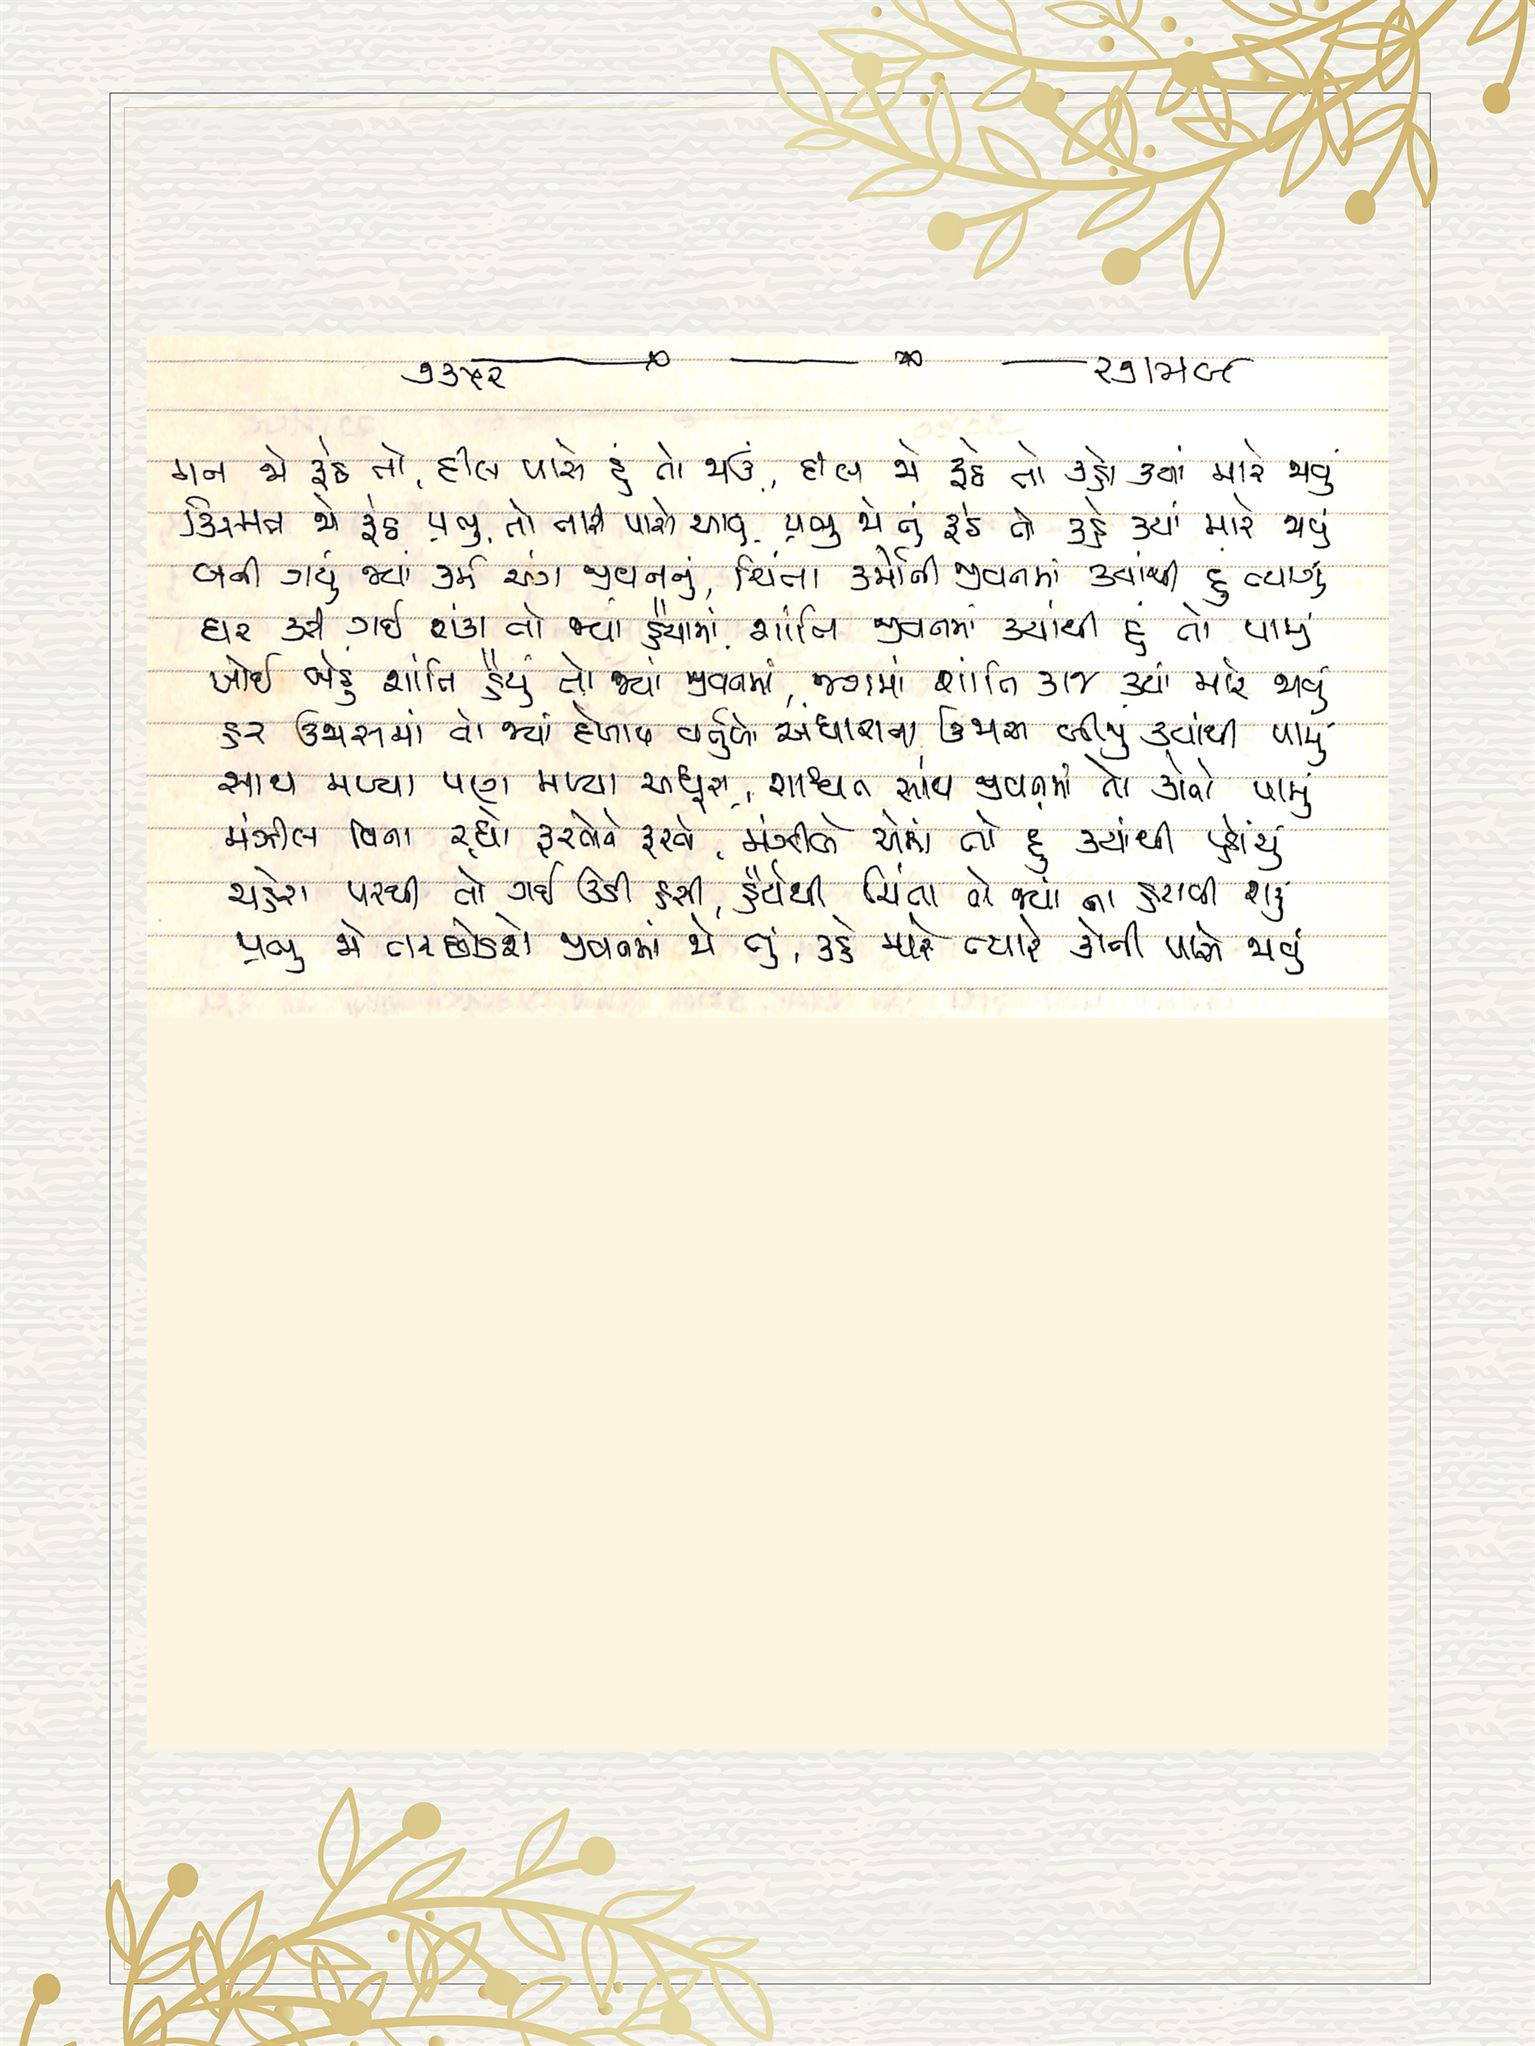 ૭૩૫૨ ૨૭|મ૯
મન જો રૂઠે તો, દીલ પાસે હું તો જઉં, દીલ જો રૂઠે તો કહો ક્યાં મારે જવું
કિસ્મત જો રૂઠે પ્રભુ, તો તારી પાસે આવું, પ્રભુ જો તું રૂઠે તો કહે ક્યાં મારે જવું
બની ગયું જ્યાં કર્મ અંગ જીવનનું, ચિંતા કર્મોની જીવનમાં ક્યાંથી હું ત્યાગું
ઘર કરી ગઈ શંકા તો જ્યાં હૈયામાં, શાંતિ જીવનમાં ક્યાંથી હું તો પામું
ખોઈ બેઠું શાંતિ હૈયું તો જ્યાં જીવનમાં, જગમાં શાંતિ કાજ ક્યાં મારે જવું
હર ઉજાસમાં તો જ્યાં દેખાય વર્તુળો અંધારાના, ઉજાસ બીજું ક્યાંથી પામું
સાથ મળ્યા પણ મળ્યા અધૂરા, શાશ્વત સાથ જીવનમાં તો કોનો પામું
મંઝીલ વિના રહ્યો ફરતોને ફરતો, મંઝીલે એમાં તો હું ક્યાંથી પહોંચું
ચહેરા પરથી તો ગઈ ઉડી હસી, હૈયેથી ચિંતા તો જ્યાં ના હટાવી શકું
પ્રભુ જો તરછોડશો જીવનમાં જો તું, કહે મારે ત્યારે કોની પાસે જવું